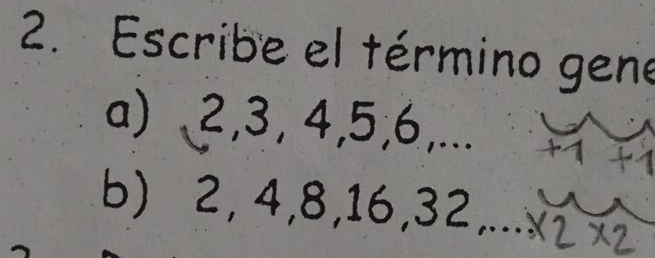 2. Escribe el término gene
a) 2,3, 4,5,6,... +1 +1
b) 2, 4,8,16,32,.... x2 x2